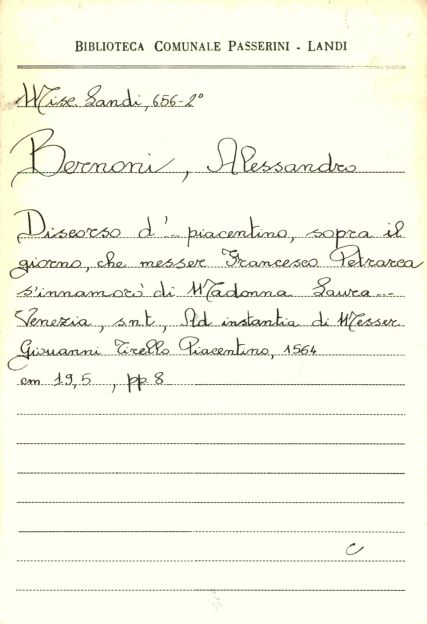 BIBLIOTECA COMUNALE PASSERINI - LANDI
Misc. Landi, 656-2°
Bernoni, Alessandro
Discorso d'... piacentino, sopra il
giorno, che messer Francesco Petrarca
s'innamorò di Madonna Laura ...
Venezia, s.n.t., Ad instantia di Messer
Giovanni Tirello Piacentino, 1564
cm 19,5 , pp. 8
C